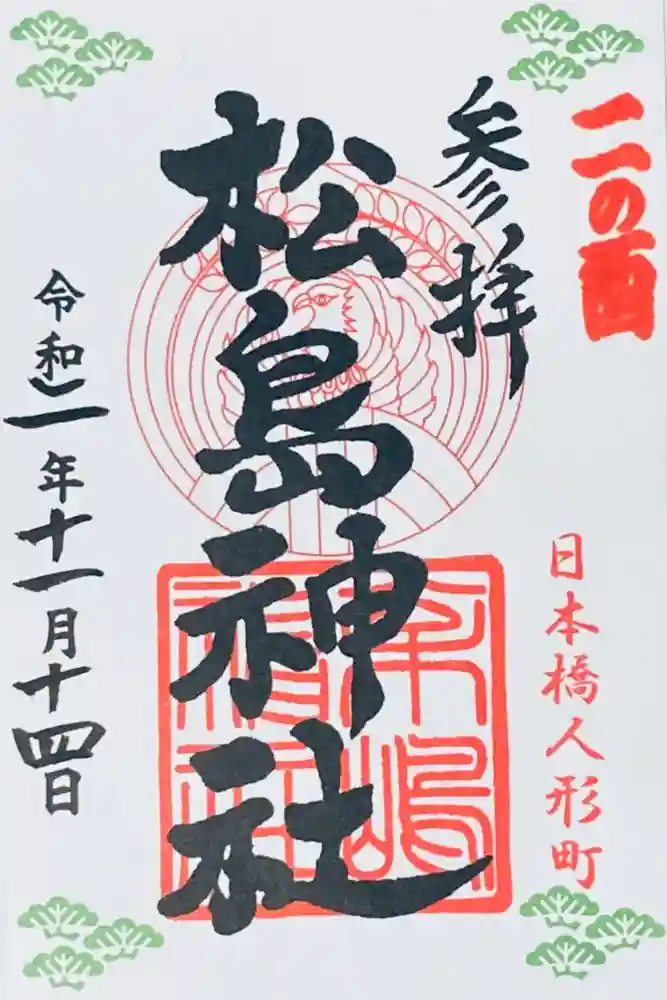 二の酉
日本橋人形町
参拝
松島神社
令和二年十一月十四日